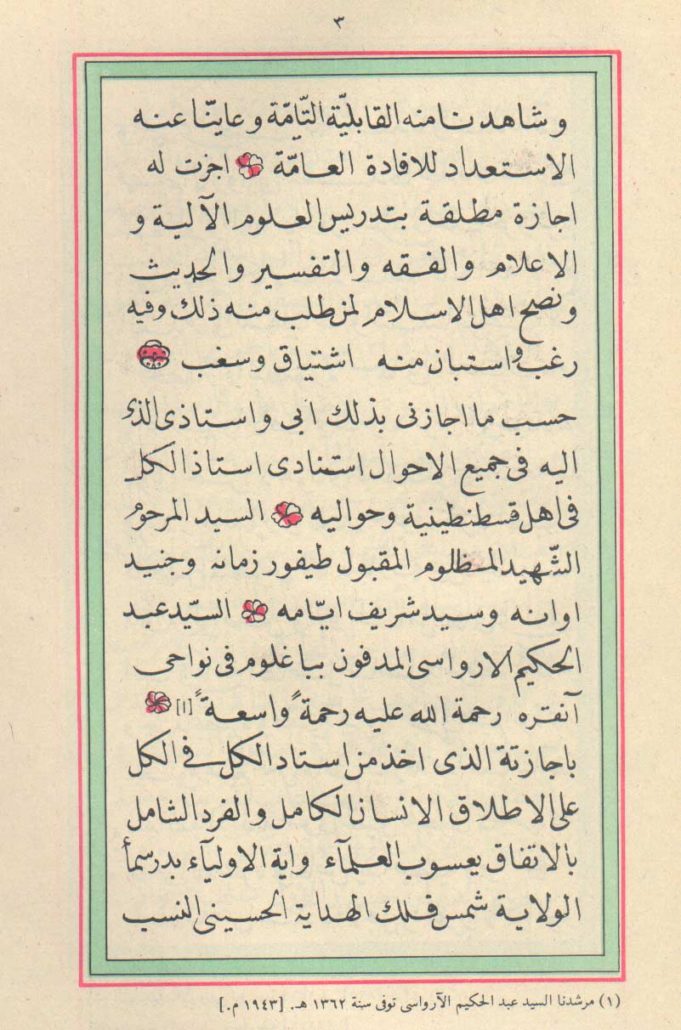 ٣
و شاهدنا منه القابليّة التّامّة و عاينّا عنه
الاستعداد للافادة العامّة اجزت له
اجازة مطلقة بتدريس العلوم الآلية و
الاعلام والفقه والتفسير والحديث
ونصح اهل الاسلام لمن طلب منه ذلك وفيه
رغب واستبان منه اشتياق وسغب
حسب ما اجازنى بذلك ابى واستاذى الذى
اليه فى جميع الاحوال استنادى استاذ الكل
فى اهل قسطنطينية وحواليه السيد المرحوم
الشّهيد المظلوم المقبول طيفور زمانه وجنيد
اوانه وسيد شريف ايّامه السّيّد عبد
الحكيم الارواسى المدفون بباغلوم فى نواحى
آنقره رحمة الله عليه رحمةً واسعةً [١]
باجازتة الذى اخذ من استاد الكل فى الكل
على الاطلاق الانسان الكامل والفرد الشامل
بالاتفاق يعسوب العلمآء واية الاوليآء بدر سمأ
الولاية شمس فلك الهداية الحسينى النسب
(١) مرشدنا السيد عبد الحكيم الآرواسى توفى سنة ١٣٦٢ هـ. [١٩٤٣ م.]